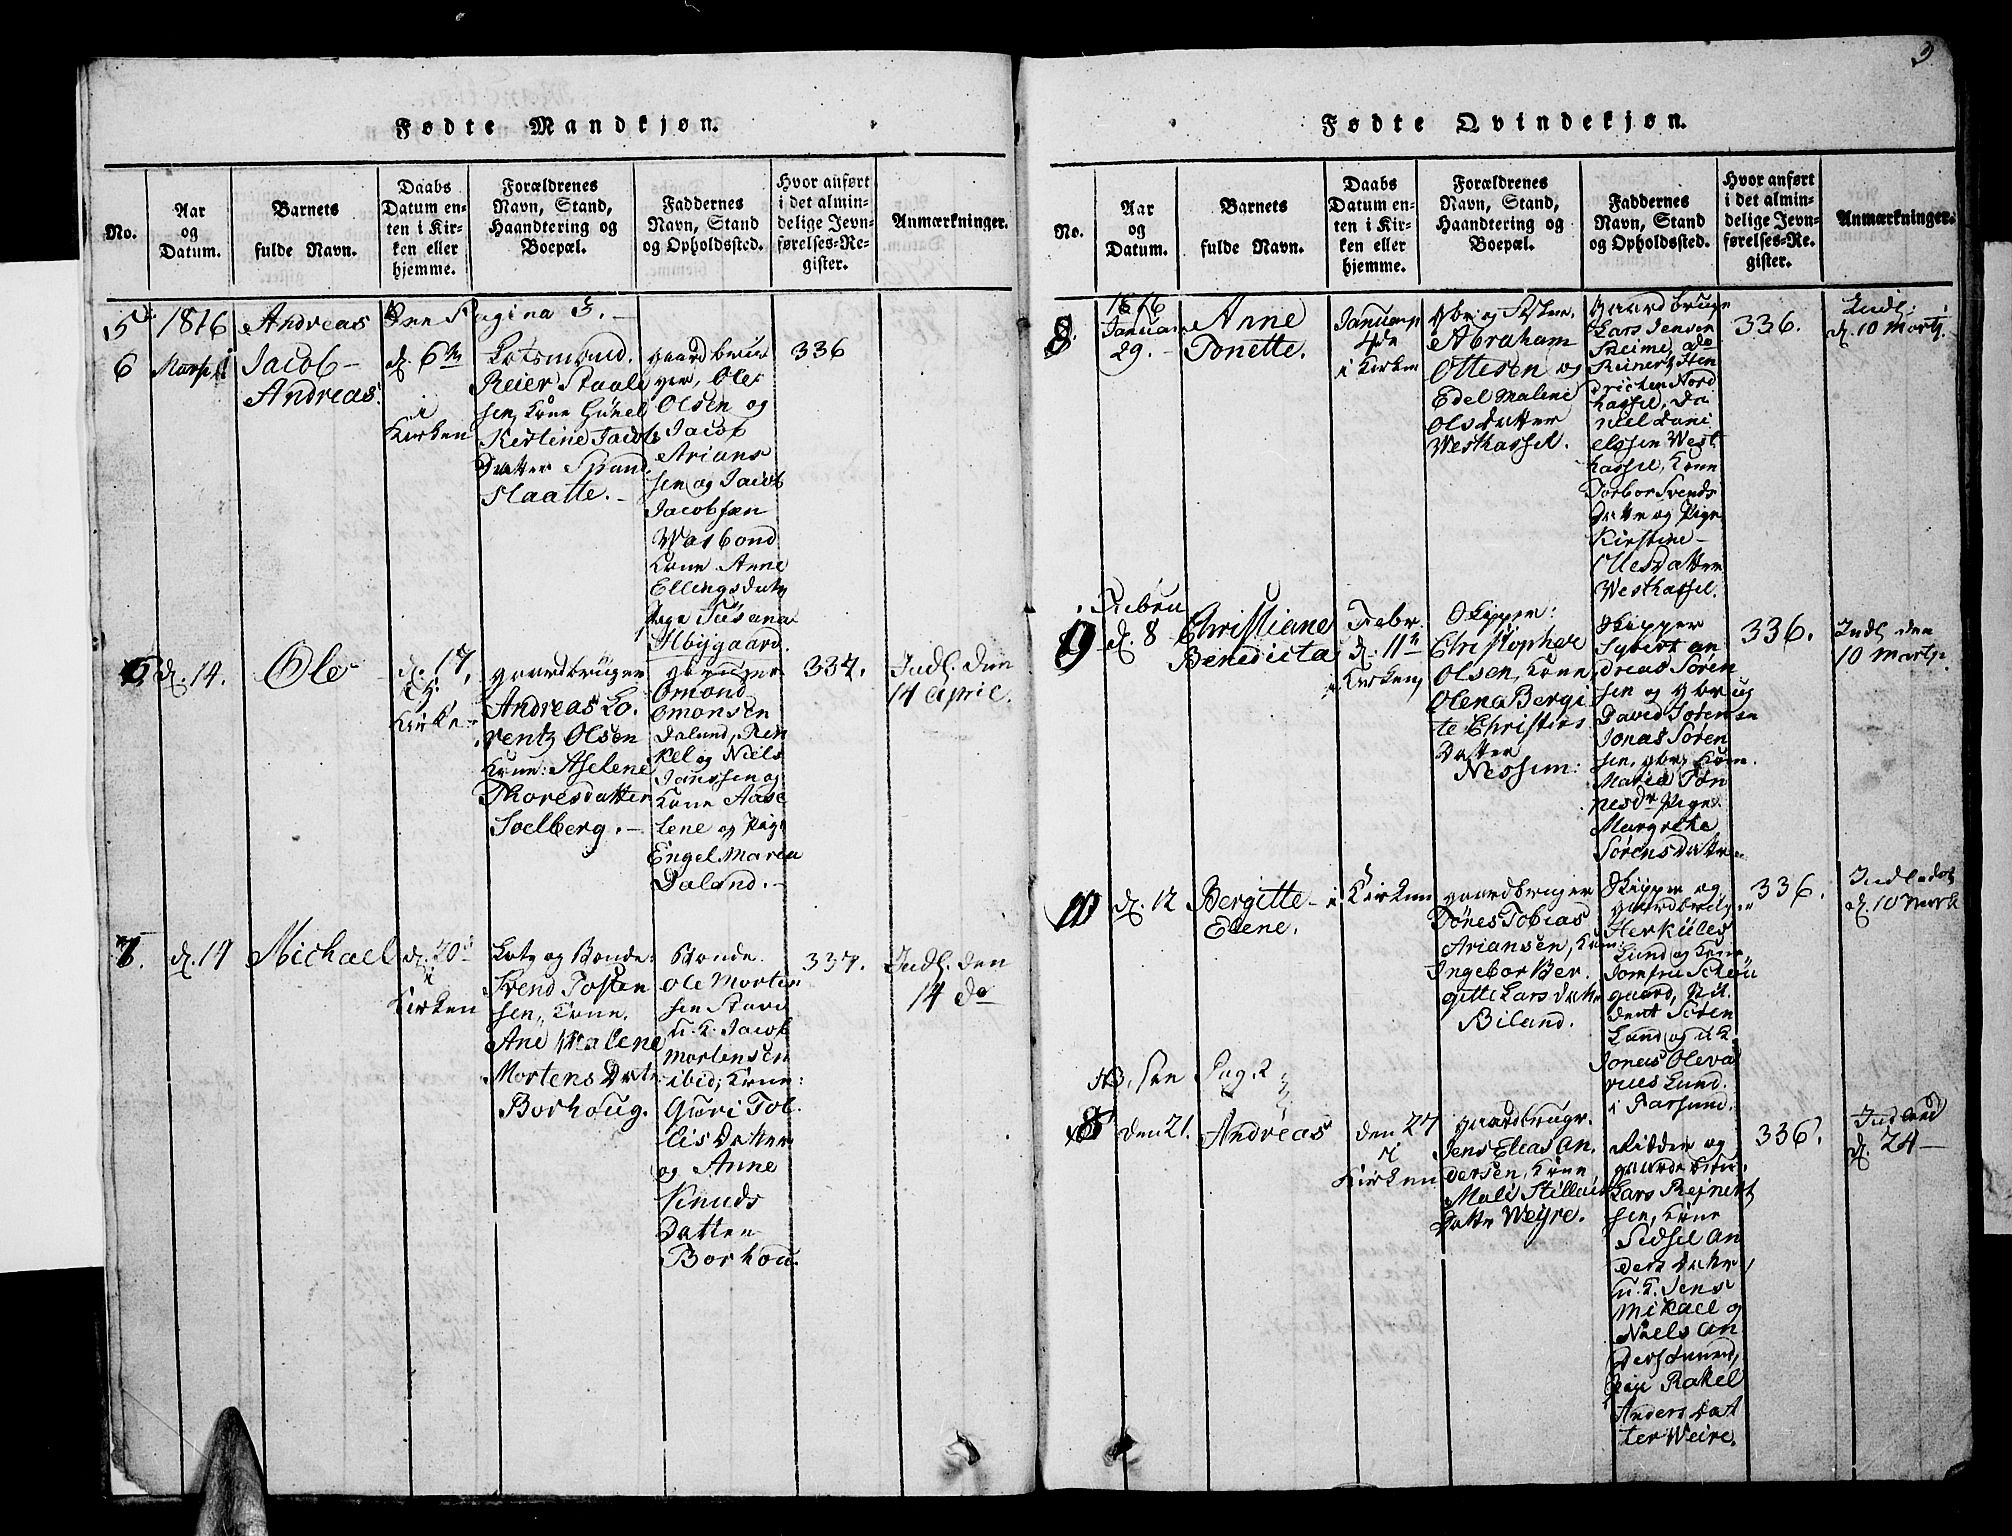 3
Fødte Mandkjøn.
No.
Aar
og
Datum.
Barnets
fulde Navn.
Daabs
Datum en-
ten i Kir-
ken eller
hjemme.
Forældrenes
Navn, Stand,
Haandtering og
Boepæl.
Faddernes
Navn, Stand
og Opholdssted.
Hvor anført
i det almin-
delige Jevn-
førelses-Re-
gister.
Anmærkninger.
5. 1816
Andreas
Pagina 3.
6
Jacob-
Andreas.
d. 6te
i
Kirken
Reier Staale
sen, Kone Gunel
Kirstine Jacobs
Datter
Slaatte.
gaardbru
ger, Ole
Olsen og
Jacob
Arians
sen og Jacob
Jacobsen
Wasbond
Kone Anne
Ellingsdatr
Susana
Høygaard.
336
d. 14.
Ole
d. 17
Kirke
gaardbruger
Andreas Lo-
rentz Olsen
Kone: Aselene
Thoresdatter
Soelberg.
Omond
Omonsen
Daland,
og Niels
Janssen og
Kone Aase
lene og Pige
Engel Maria
Daland.
337.
Indl. den
14 Apric.
7.
d. 14
Michael
d. 20
Kirken
Lotz og Bonde:
Svend Tosten
sen, Kone
Ane Malene
Mortens Datr
Borhoug.
Bonde
Ole Morten
sen
u. K. Jacob
Mortensen
ibid; Kone:
Guri Tol-
lisDatter
og Anne
Knuds
Datter
Borhou.
337.
Indl. den
14 do
Fødte Qvindekjøn.
No.
Aar
og
Datum.
Barnets
fulde Navn.
Daabs
Datum en-
ten i Kir-
ken eller
hjemme.
Forældrenes
Navn, Stand,
Haandtering og
Boepæl.
Faddernes
Navn, Stand
og Opholdssted.
Hvor anført
i det almin-
delige Jevn-
førelses-Re-
gister.
Anmærkninger.
8.
1816
Januar
29.
Anne
Tonette.
4de
i Kirken
Abraham
Ottesen og
Edel Malene
Olsdatter
Westhassel.
gaardbruge
Lars Jensen
Skeime,
Reinert Hen
drichsen Nord
hassel, Da
niel Dani
elssen West
hassel, Kone
Torbor Svends
Datter og Pige
Kirstine
OlesDatter
Westhassel.
336.
Indl.
d. 10 Marti.
9
Febru
d. 8
Christiane
Benedicta
Febr.
d. 11te
Kirken
Skipper:
Christopher
Olsen, Kone
Olena Bergi
te Christies
Datter
Nessum:
Skipper
Sybert An
dreas Søren
sen og gbrug
David Sørensen
Jonas Søren
sen, gbr, Kone
Maria Tøn
nesdr Pige
Margrethe
Sørensdatter
336.
Indl. den
10 Marti.
10
d. 12
Bergitte
Elene.
i Kirken
gaardbruger
Tønes Tobias
Ariansen, Kone
Ingebor Ber-
gitte Larsdatr
Biland.
Skipper og
gaardbruger
Herkules
Lund og Kone,
Jomfru
gaard,
Søren
Lund og u.K.
Jonas Oleva
rius Lund.
i Farsund.
336.
d. 10 Mart
NB. see Pag. 2
8
den 21.
Andreas
den 27
i
Kirken
gaardbrugr.
Jens Elias An-
dersen, Kone
Mali
Datter Weyre.
Lars Reinert
sen, Kone
Sidsel An
ders Datter
u. K. Jens
Mikael og
Niels An
Rakel
Anders Dat
ter Weire.
336.
d. 24